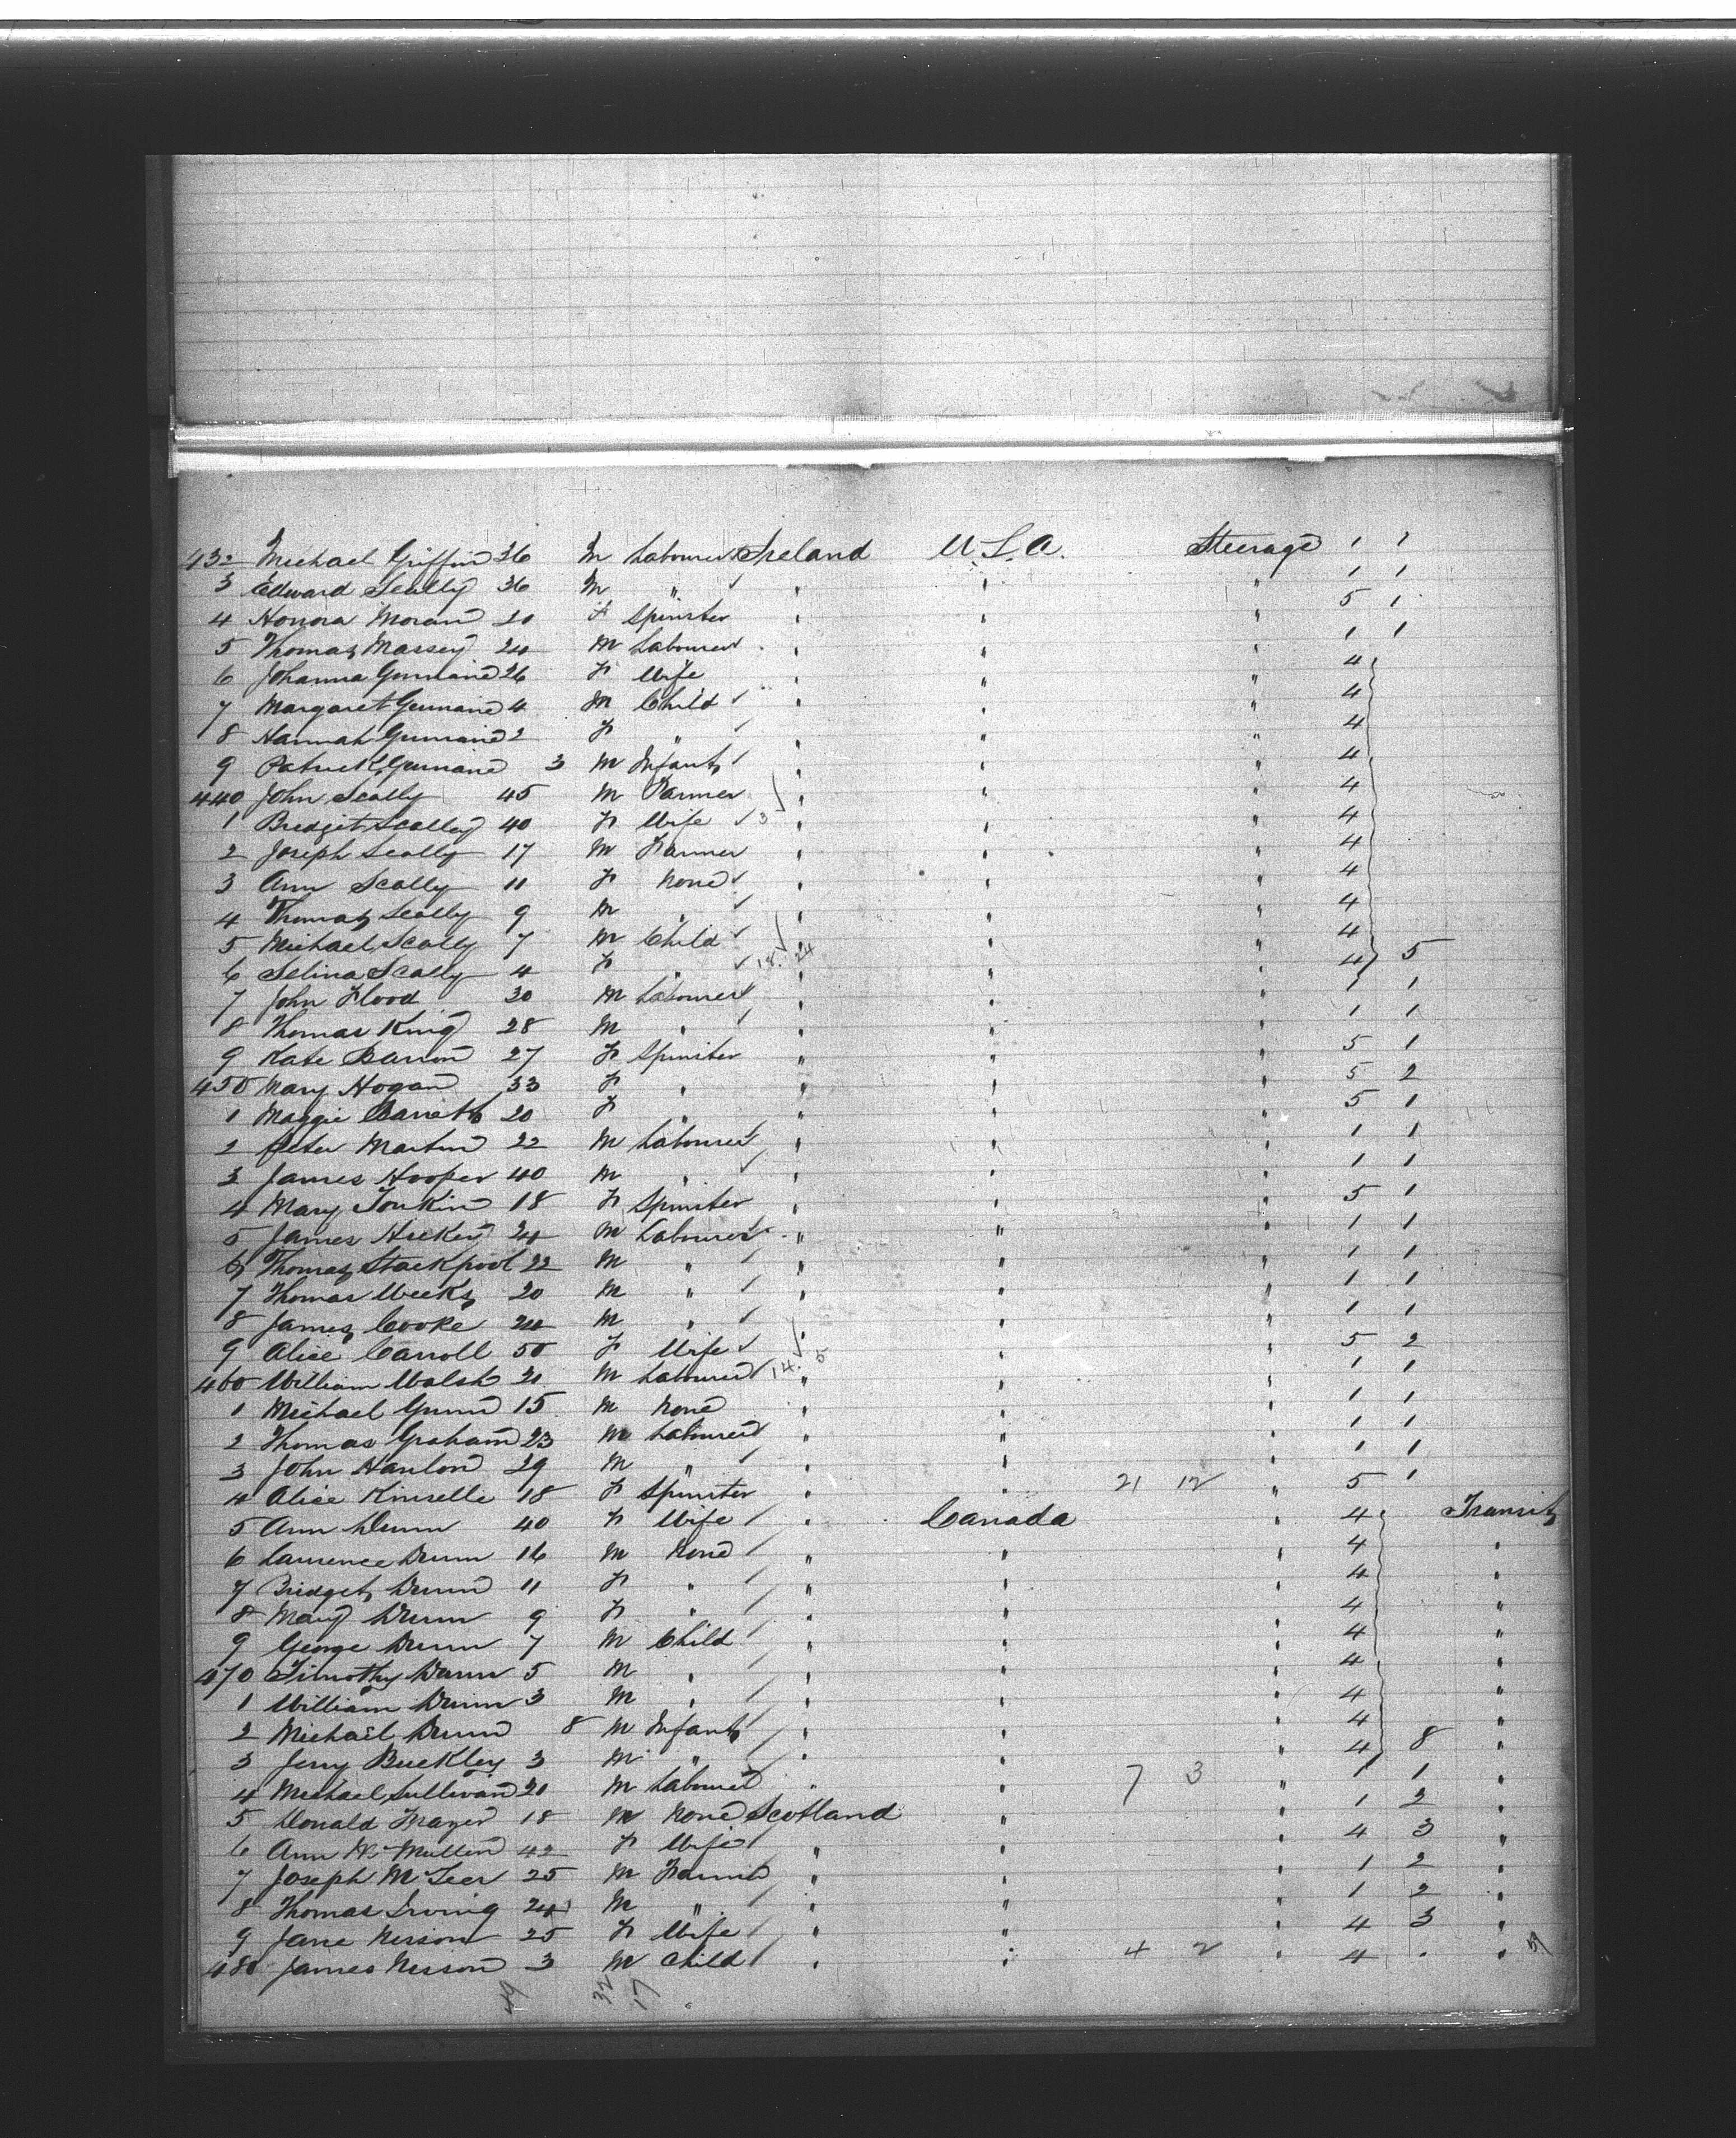 432 Michael Griffin 36 M Labourer Ireland U.S.A. Steerage 1 1
3 Edward Scally 36 M " " " " 1 1
4 Honora Moran 20 F Spinster " " " 5 1
5 Thomas Massey 24 M Labourer " " " 1 1
6 Johanna 26 F Wife " " " 4
7 Margaret 4 M Child " " " 4
8 Hannah 2 F " " " " 4
9 Patrick 3 M Infant " " " 4
440 John Scally 45 M Farmer " " " 4
1 Bridget Scally 40 F Wife 3 " " " 4
2 Joseph Scally 17 M Farmer " " " 4
3 Ann Scally 11 F None " " " 4
4 Thomas Scally 9 M " " " " 4
5 Michael Scally 7 M Child " " " 4
6 Selina Scally 4 F " 18 24 " " 4 5
7 John Flood 30 M Labourer " " " 1 1
8 Thomas King 28 M " " " " 1 1
9 Kate Barron 27 F Spinster " " " 5 1
450 Mary Hogan 33 F " " " " 5 2
1 Maggie Barrett 20 F " " " " 5 1
2 Peter Martin 22 M Labourer " " " 1 1
3 James Hooper 40 M " " " " 1 1
4 Mary Tonkin 18 F Spinster " " " 5 1
5 James Hickey 24 M Labourer " " " 1 1
6 Thomas Stackpool 22 M " " " " 1 1
7 Thomas Weeks 20 M " " " " 1 1
8 James Cooke 24 M " " " " 1 1
9 Alice Carroll 50 F Wife 5 " " " 5 2
460 William Walsh 21 M Labourer 14 " " " 1 1
1 Michael Gunn 15 M None " " " 1 1
2 Thomas Graham 23 M Labourer " " " 1 1
3 John Hanlon 29 M " " " " 1 1
4 Alice Kinselle 18 F Spinster " " 21 12 " 5 1
5 Ann Dunn 40 F Wife " Canada " 4 Transit
6 Laurence Dunn 16 M None " " " 4 "
7 Bridget Dunn 11 F " " " " 4 "
8 Mary Dunn 9 F " " " " 4 "
9 George Dunn 7 M Child " " " 4 "
470 Timothy Dunn 5 M " " " " 4 "
1 William Dunn 3 M " " " " 4 "
2 Michael Dunn 8 M Infant " " " 4 "
3 Jerry Buckley 3 M " " " " 4 8 "
4 Michael Sullivan 20 M Labourer " " 7 3 " 1 1 "
5 Donald Frazer 18 M None Scotland " " 1 2 "
6 Ann McMullen 42 F Wife " " " 4 3 "
7 Joseph 25 M Farmer " " " 1 2 "
8 Thomas Irving 24 M " " " " 1 2 "
9 Jane 25 F Wife " " " 4 3 "
480 James 3 M Child " " 4 2 " 4 " "
32 17